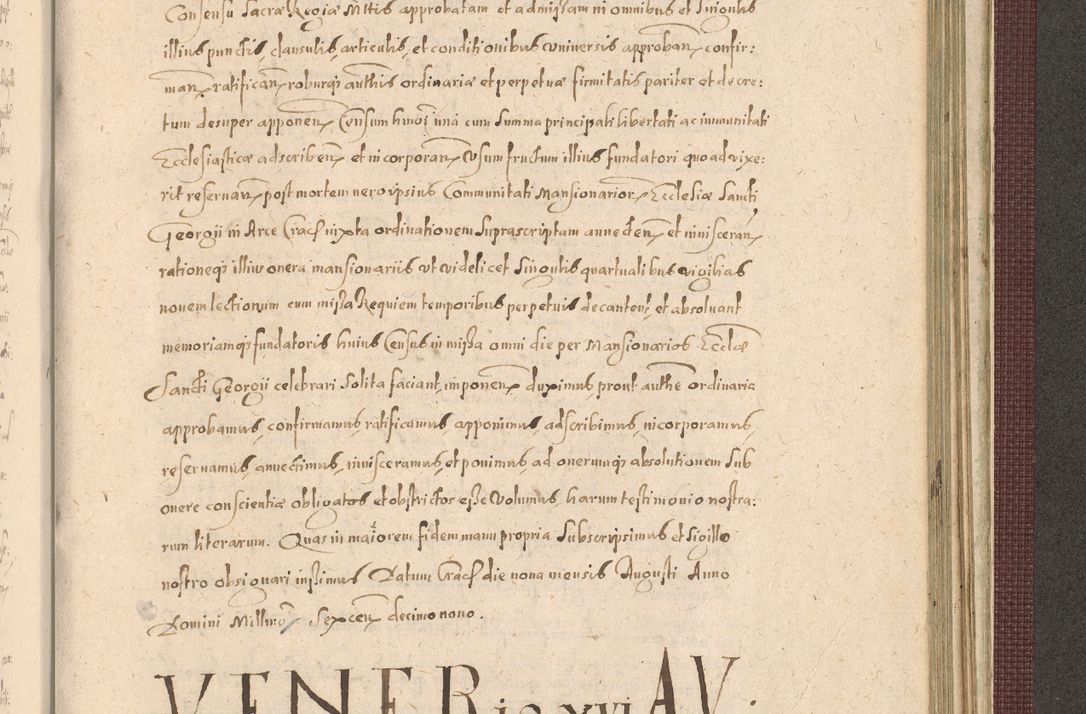 Consensu Sacræ Regiæ Mttis approbatam et admissam in omnibus et singulis
illius punctis, clausulis, articulis, et conditionibus universis approban, confir:
man, ratifican, roburq3 authis ordinariæ et perpetuæ firmitatis pariter et decre:
tum desuper apponen, Censum hmoi unà cum summa principali libertati ac immunitati
Ecclesiasticæ adscriben, et incorporan, Usumfructum illius fundatori quoad vixe:
rit reservan, post mortem vero ipsius Communitati Mansionarior, Ecclesiæ Sancti
Georgii in Arce Crac, iuxta ordinationem suprascriptam annecten, et inisceran,
rationeq3 illius onera mansionariis ut videlicet singulis quartualibus vigilias
novem lectionum cum missa Requiem temporibus perpetuis decantent, et absolvant
memoriamq3 fundatoris huius Census in missa omni die per Mansionarios Ecclæ
Sancti Georgii celebrari solita faciant, imponen, duximus, prout authe ordinaria
approbamus, confirmamus, ratificamus, apponimus, adscribimus, incorporamus,
reservamus, annectimus, inisceramus, et ponimus, ad onerumq3 absolutionem sub
onere conscientiæ obligatos et obstrictos esse volumus, harum testimonio nostra:
rum literarum. Quas in maiorem fidem manu propria subscripsimus et sigillo
nostro obsignari iussimus Datum Crac, die nona mensis Augusti Anno
Domini Millmo, Sexcen, decimo nono.
VENERis XVI AV